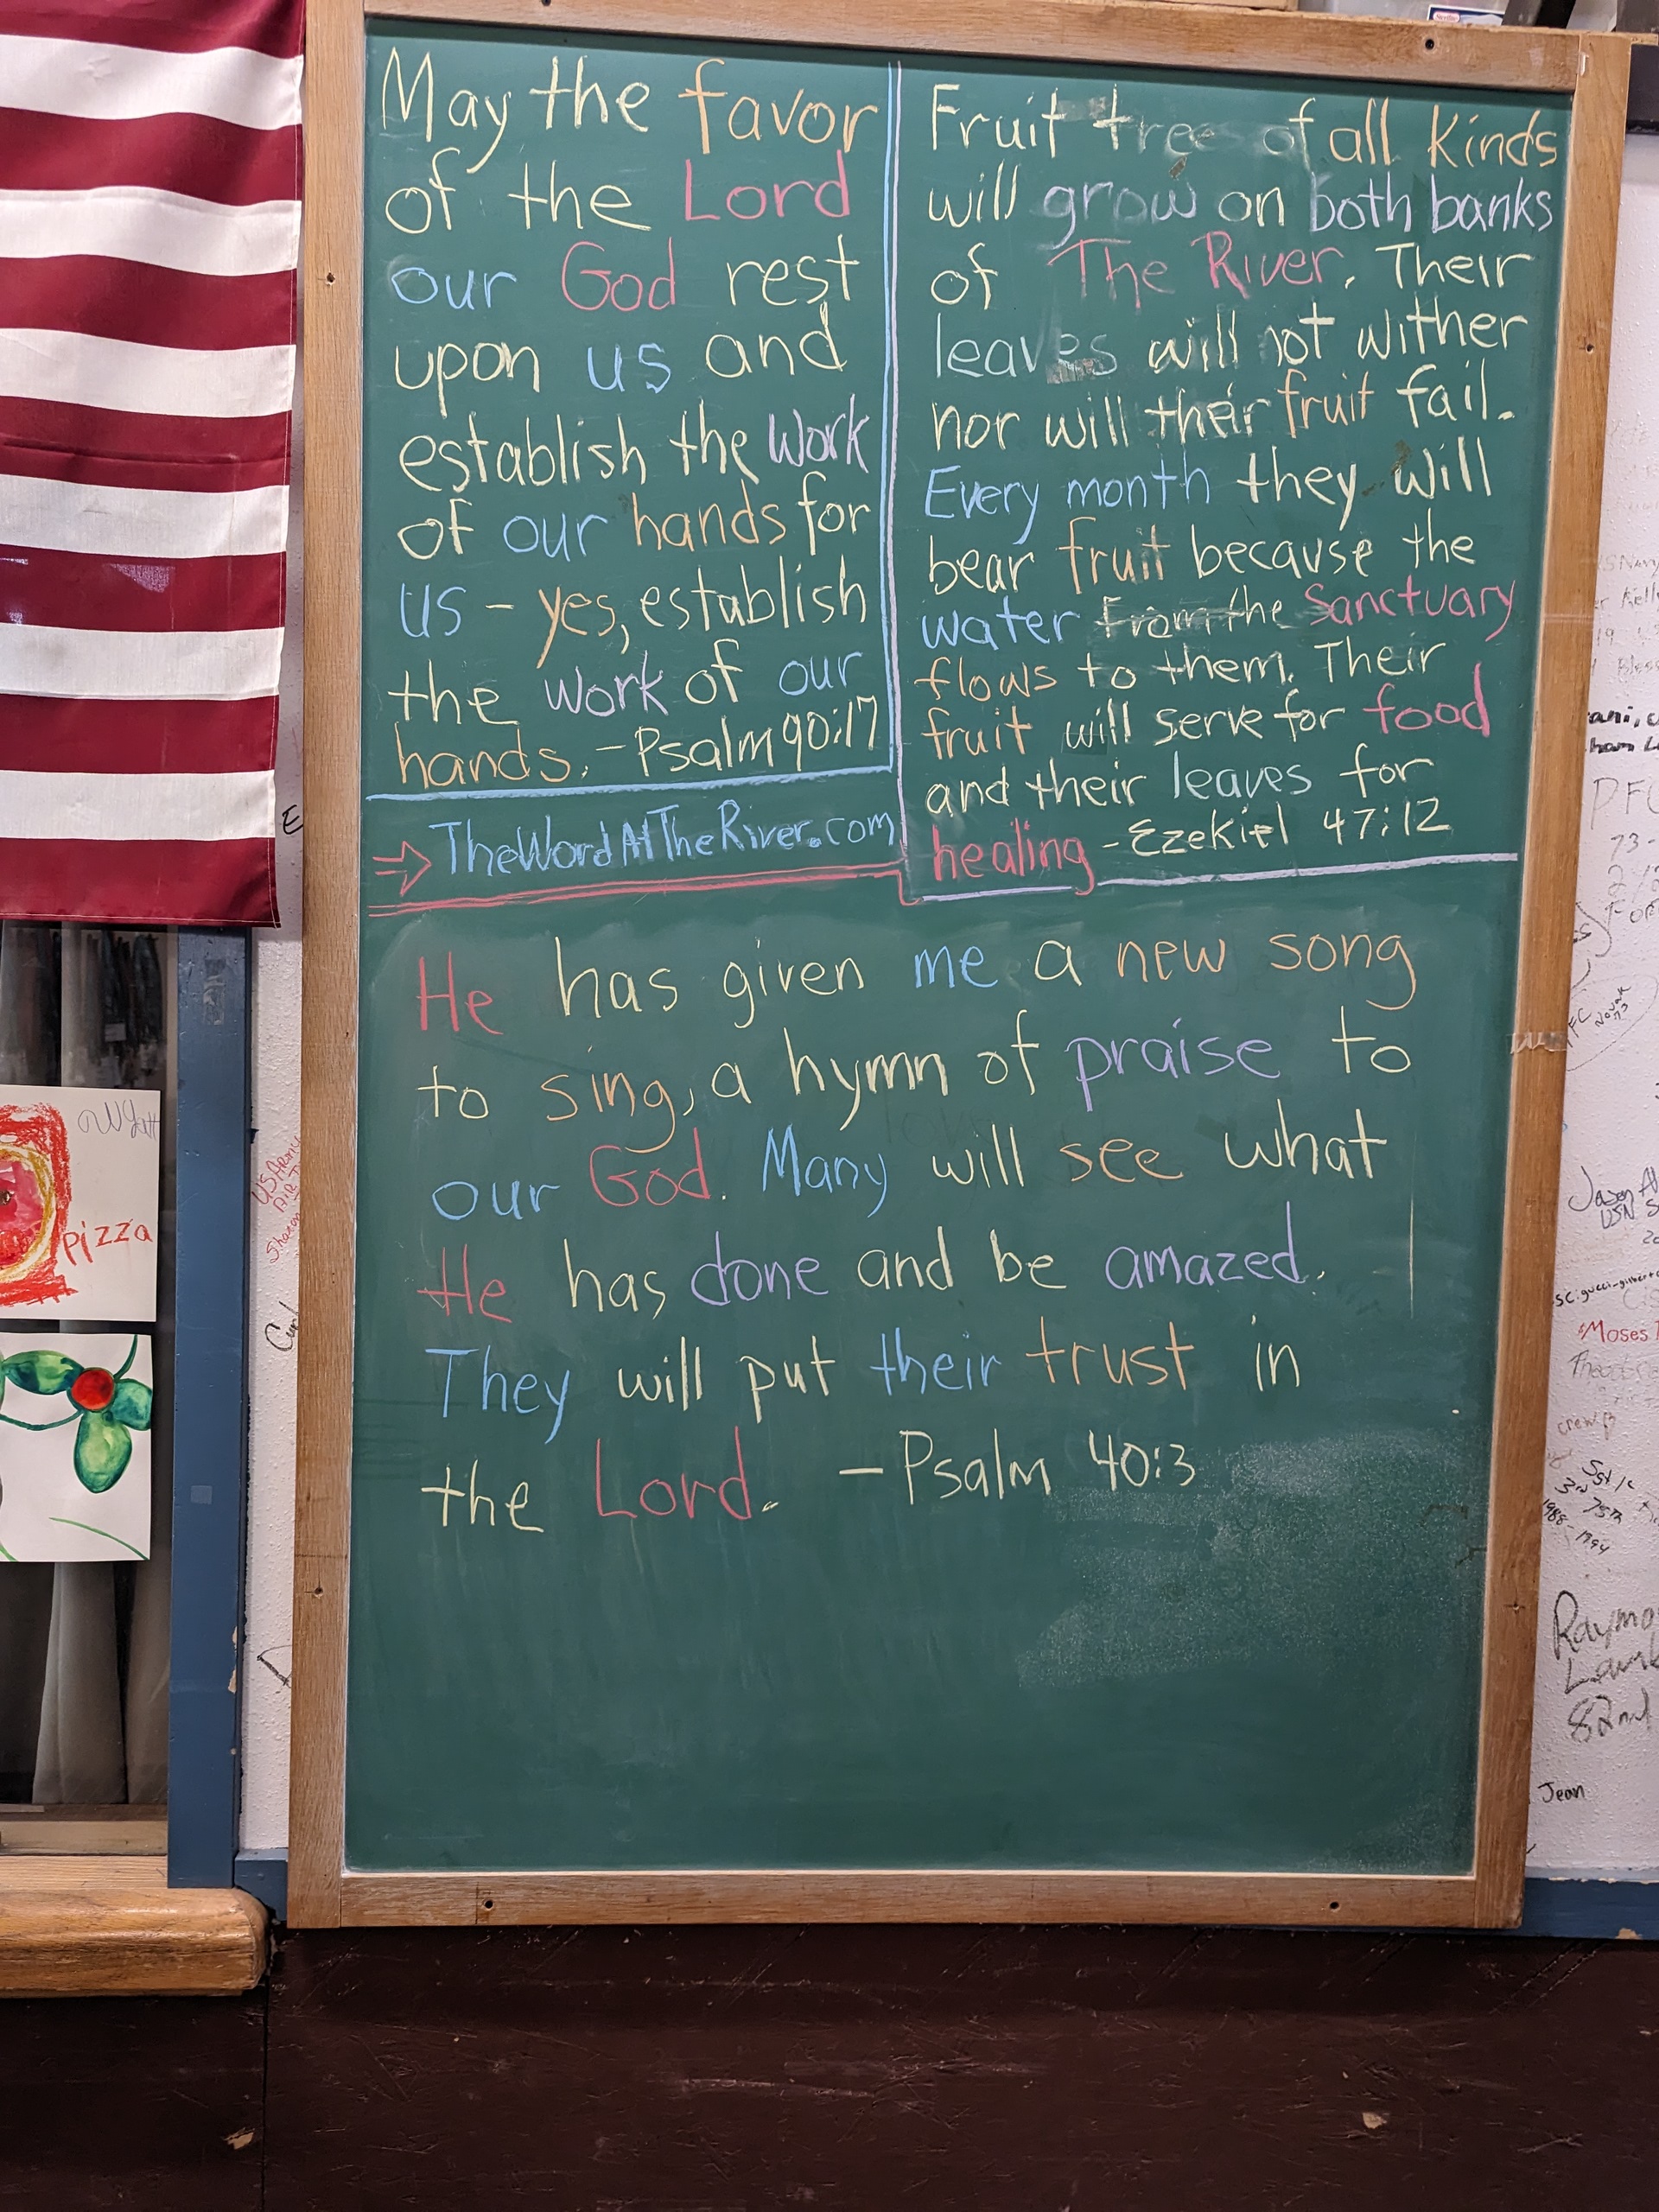 May the favor
of the Lord
our God rest
upon us and
establish the work
of our hands for
us - yes, establish
the work of our
hands. - Psalm 90:17
→ TheWordAtTheRiver.com
Fruit tree of all kinds
will grow on both banks
of The River. Their
leaves will not wither
nor will their fruit fail.
Every month they will
bear fruit because the
water from the Sanctuary
flows to them. Their
fruit will serve for food
and their leaves for
healing - Ezekiel 47:12
He has given me a new song
to sing, a hymn of praise to
our God. Many will see what
He has done and be amazed.
They will put their trust in
the Lord. - Psalm 40:3
pizza
US Army
Jason
USN
Moses
Raymo
82nd
Jean